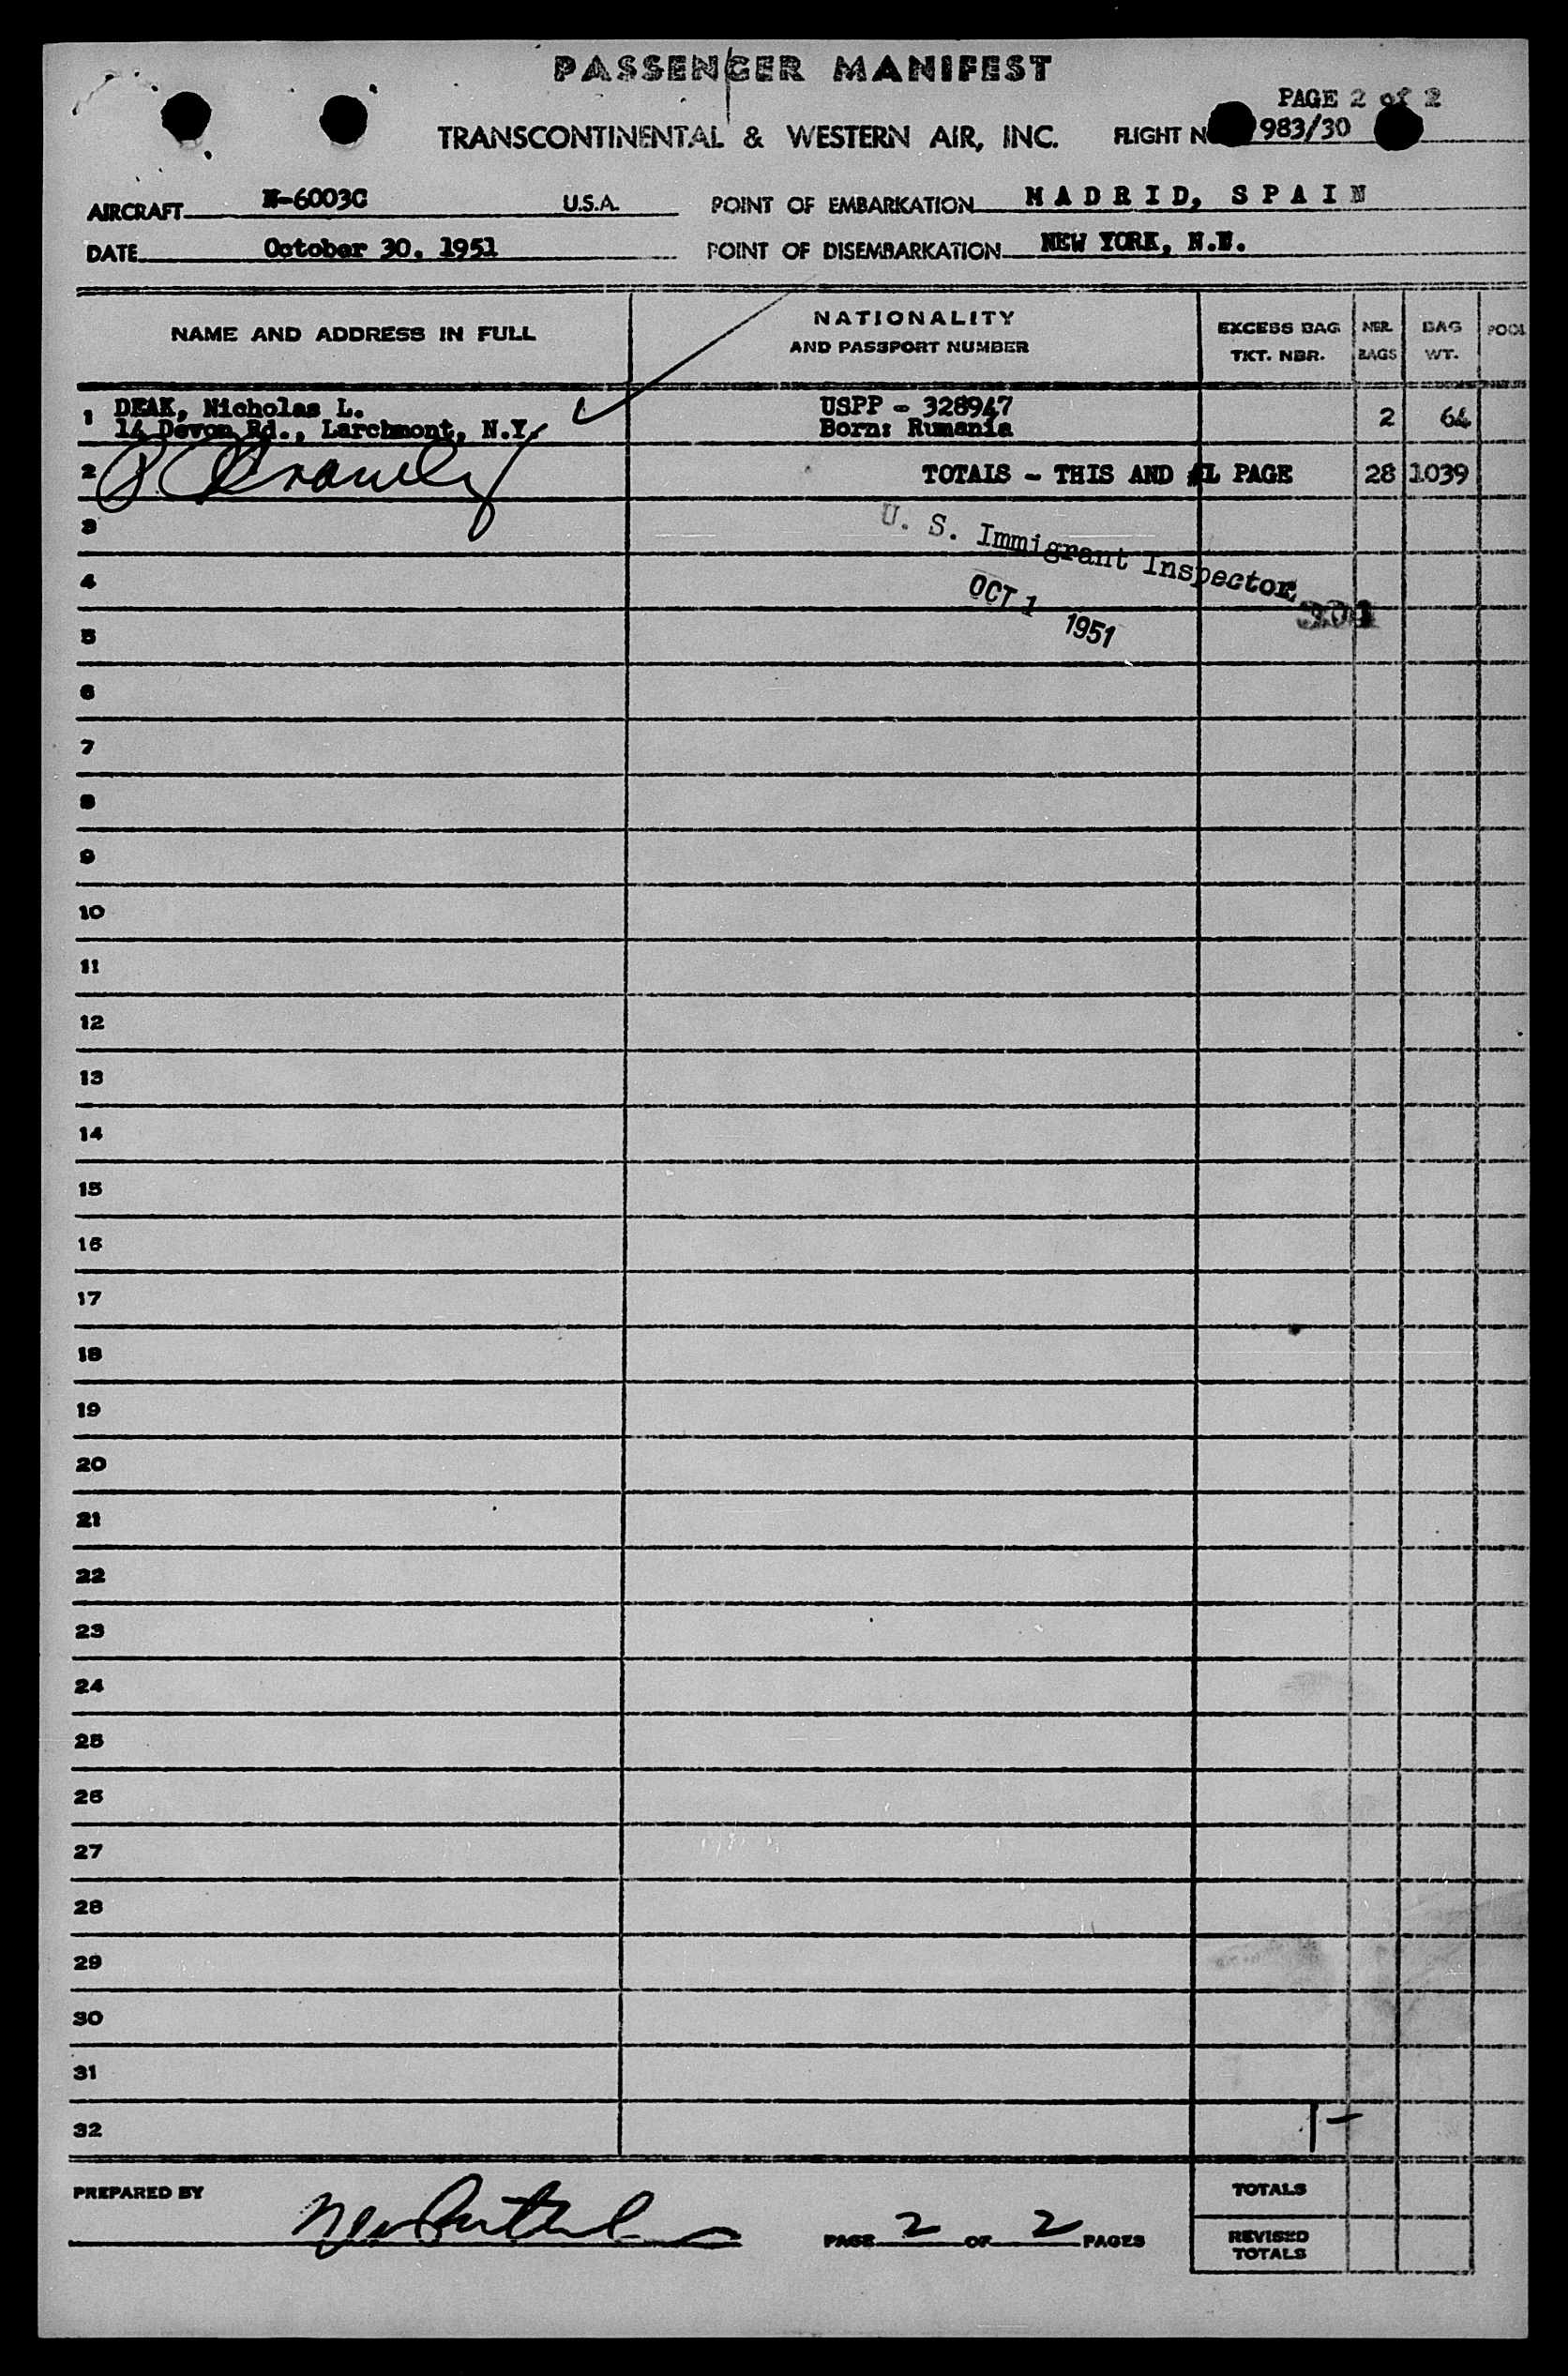 PASSENGER MANIFEST
PAGE 2 of 2
TRANSCONTINENTAL & WESTERN AIR, INC. FLIGHT N 983/30
AIRCRAFT N-6003C U.S.A. POINT OF EMBARKATION M A D R I D, S P A I N
DATE October 30, 1951 POINT OF DISEMBARKATION NEW YORK, N.Y.
NAME AND ADDRESS IN FULL
NATIONALITY
AND PASSPORT NUMBER
EXCESS BAG
TKT. NBR.
NBR.
BAGS
BAG
WT.
POOL
1 DEAK, Nicholas L. USPP - 328947 2 64
14 Devon Rd., Larchmont, N.Y. Born: Rumania
2 TOTALS - THIS AND #1 PAGE 28 1039
3
U. S. Immigrant Inspector
4
OCT 1 1951
5
6
7
8
9
10
11
12
13
14
15
16
17
18
19
20
21
22
23
24
25
26
27
28
29
30
31
32
PREPARED BY
TOTALS
PAGE 2 OF 2 PAGES
REVISED
TOTALS